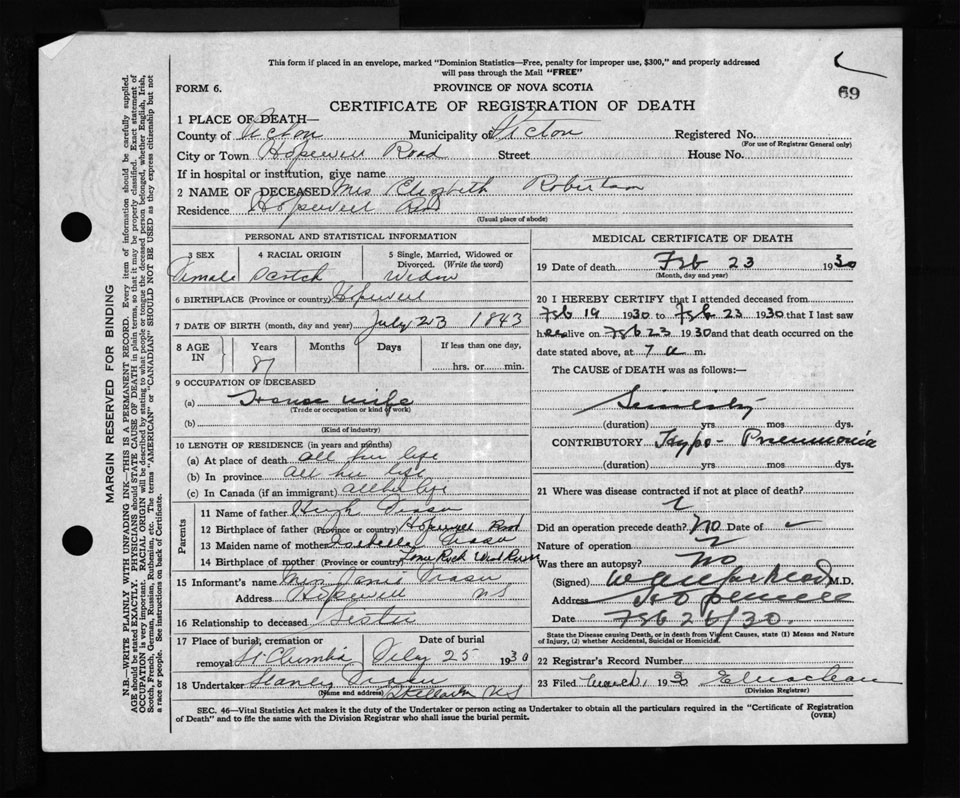 This form if placed in an envelope, marked "Dominion Statistics—Free, penalty for improper use, $300," and properly addressed
will pass through the Mail "FREE"
69
FORM 6.
PROVINCE OF NOVA SCOTIA
CERTIFICATE OF REGISTRATION OF DEATH
1 PLACE OF DEATH—
County of Pictou Municipality of Pictou Registered No.
(For use of Registrar General only)
City or Town Hopewell Road Street House No.
If in hospital or institution, give name
2 NAME OF DECEASED Mrs Elizabeth Robertson
Residence Hopewell Road
(Usual place of abode)
PERSONAL AND STATISTICAL INFORMATION
3 SEX 4 RACIAL ORIGIN 5 Single, Married, Widowed or
Divorced. (Write the word)
Female Scotch Widow
6 BIRTHPLACE (Province or country) Hopewell
7 DATE OF BIRTH (month, day and year) July 23 1843
8 AGE IN Years Months Days If less than one day,
87 hrs. or min.
9 OCCUPATION OF DECEASED
(a) House wife
(Trade or occupation or kind of work)
(b)
(Kind of industry)
10 LENGTH OF RESIDENCE (in years and months)
(a) At place of death all her life
(b) In province all her life
(c) In Canada (if an immigrant) all her life
Parents
11 Name of father Hugh Fraser
12 Birthplace of father (Province or country) Hopewell Road
13 Maiden name of mother Isabella Fraser
14 Birthplace of mother (Province or country) Lime Rock West River
15 Informant's name Fraser
Address Hopewell NS
16 Relationship to deceased Sister
17 Place of burial, cremation or Date of burial
removal St Clumba Feby 25 1930
18 Undertaker Stanley Fraser
(Name and address) Stellarton NS
MEDICAL CERTIFICATE OF DEATH
19 Date of death Feb 23 1930
(Month, day and year)
20 I HEREBY CERTIFY that I attended deceased from
Feb 19 1930 to Feb 23 1930 that I last saw
her alive on Feb 23 1930 and that death occurred on
date stated above, at 7 a m.
The CAUSE of DEATH was as follows:—
Senility
(duration) yrs mos dys.
CONTRIBUTORY Hypo- Pneumonia
(duration) yrs mos dys.
21 Where was disease contracted if not at place of death?
Did an operation precede death? No Date of
Nature of operation
Was there an autopsy? No
(Signed) M.D.
Address Hopewell
Date Feb 26/30.
State the Disease causing Death, or in death from Violent Causes, state (1) Means and Nature
of Injury, (2) whether Accidental, Suicidal or Homicidal.
22 Registrar's Record Number
23 Filed March 1 1930 E Maclean
(Division Registrar)
SEC. 46—Vital Statistics Act makes it the duty of the Undertaker or person acting as Undertaker to obtain all the particulars required in the "Certificate of Registration
of Death" and to file the same with the Division Registrar who shall issue the burial permit.
(OVER)
MARGIN RESERVED FOR BINDING
N.B.—WRITE PLAINLY WITH UNFADING INK—THIS IS A PERMANENT RECORD. Every item of information should be carefully supplied.
AGE should be stated EXACTLY. PHYSICIANS should STATE CAUSE OF DEATH in plain terms, so that it may be properly classified. Exact statement of
OCCUPATION is very important. RACIAL ORIGIN will be described by stating to what people or tongue the deceased person belonged, whether English, Irish,
Scotch, French, German, Russian, Ruthenian, etc. The terms "AMERICAN" or "CANADIAN" SHOULD NOT BE USED as they express citizenship but not
a race or people. See instructions on back of Certificate.